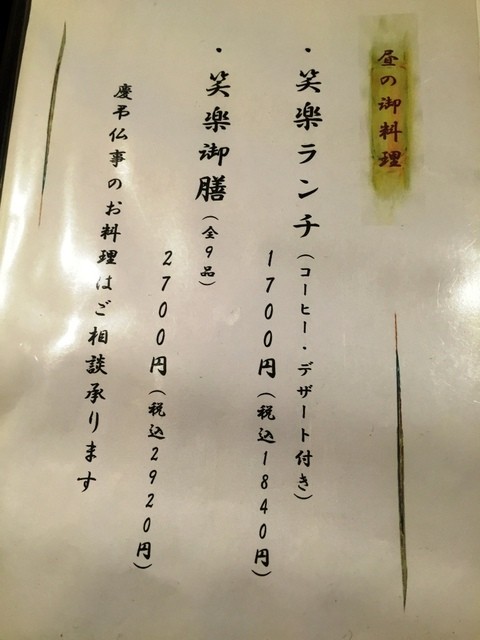 昼の御料理
・笑楽ランチ(コーヒー・デザート付き)
1700円(税込1840円)
・笑楽御膳(全9品)
2700円(税込2920円)
慶弔仏事のお料理はご相談承ります